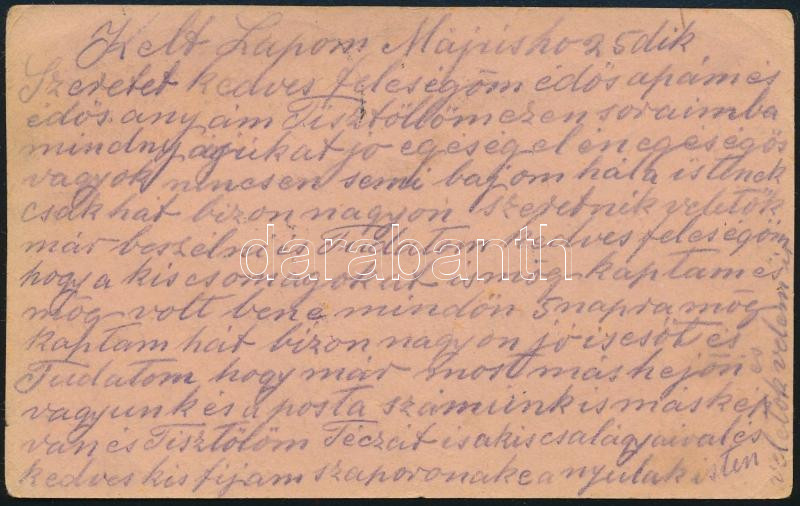 Kelt Lapom Májusho 25dik
Szeretet kedves feleségöm édös apám és
édös anyám Tisztöllöm ezen soraimba
mindnyájukat jo egéségel én egéségös
vagyok nincsen semi bajom hála istenek
csak hát bizon nagyon szeretnék veletök
már beszélni is Tudatom kedves feleségöm
hogy a kis csomagokat is még kaptam és
mög volt bene mindön 5 napra mög
kaptam hát bizon nagyon jó is és
Tudatom hogy már most más hejön
vagyunk és a posta számünk is más kej
van és Tisztölöm Téczát is a kis családjaival és
kedves kis fijam szaporonak e a nyulak isten
veletök velem is és
darabanth